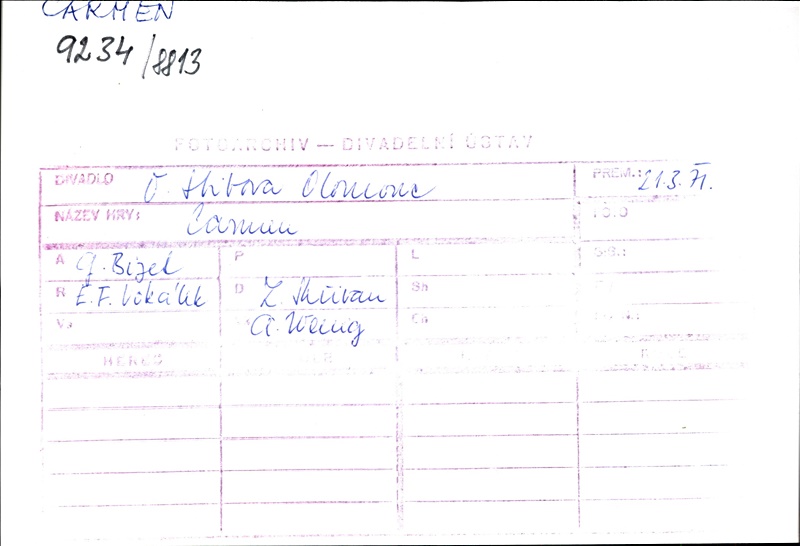 CARMEN
9234/8813
FOTOARCHIV — DIVADELNÍ ÚSTAV
DIVADLO O. Stibora Olomouc PREM.: 21.3.71.
NÁZEV HRY: Carmen
A G. Bizet P L
R E. F. Vokálek D Z. Skřivan Sh
A. Wenig
HEREC